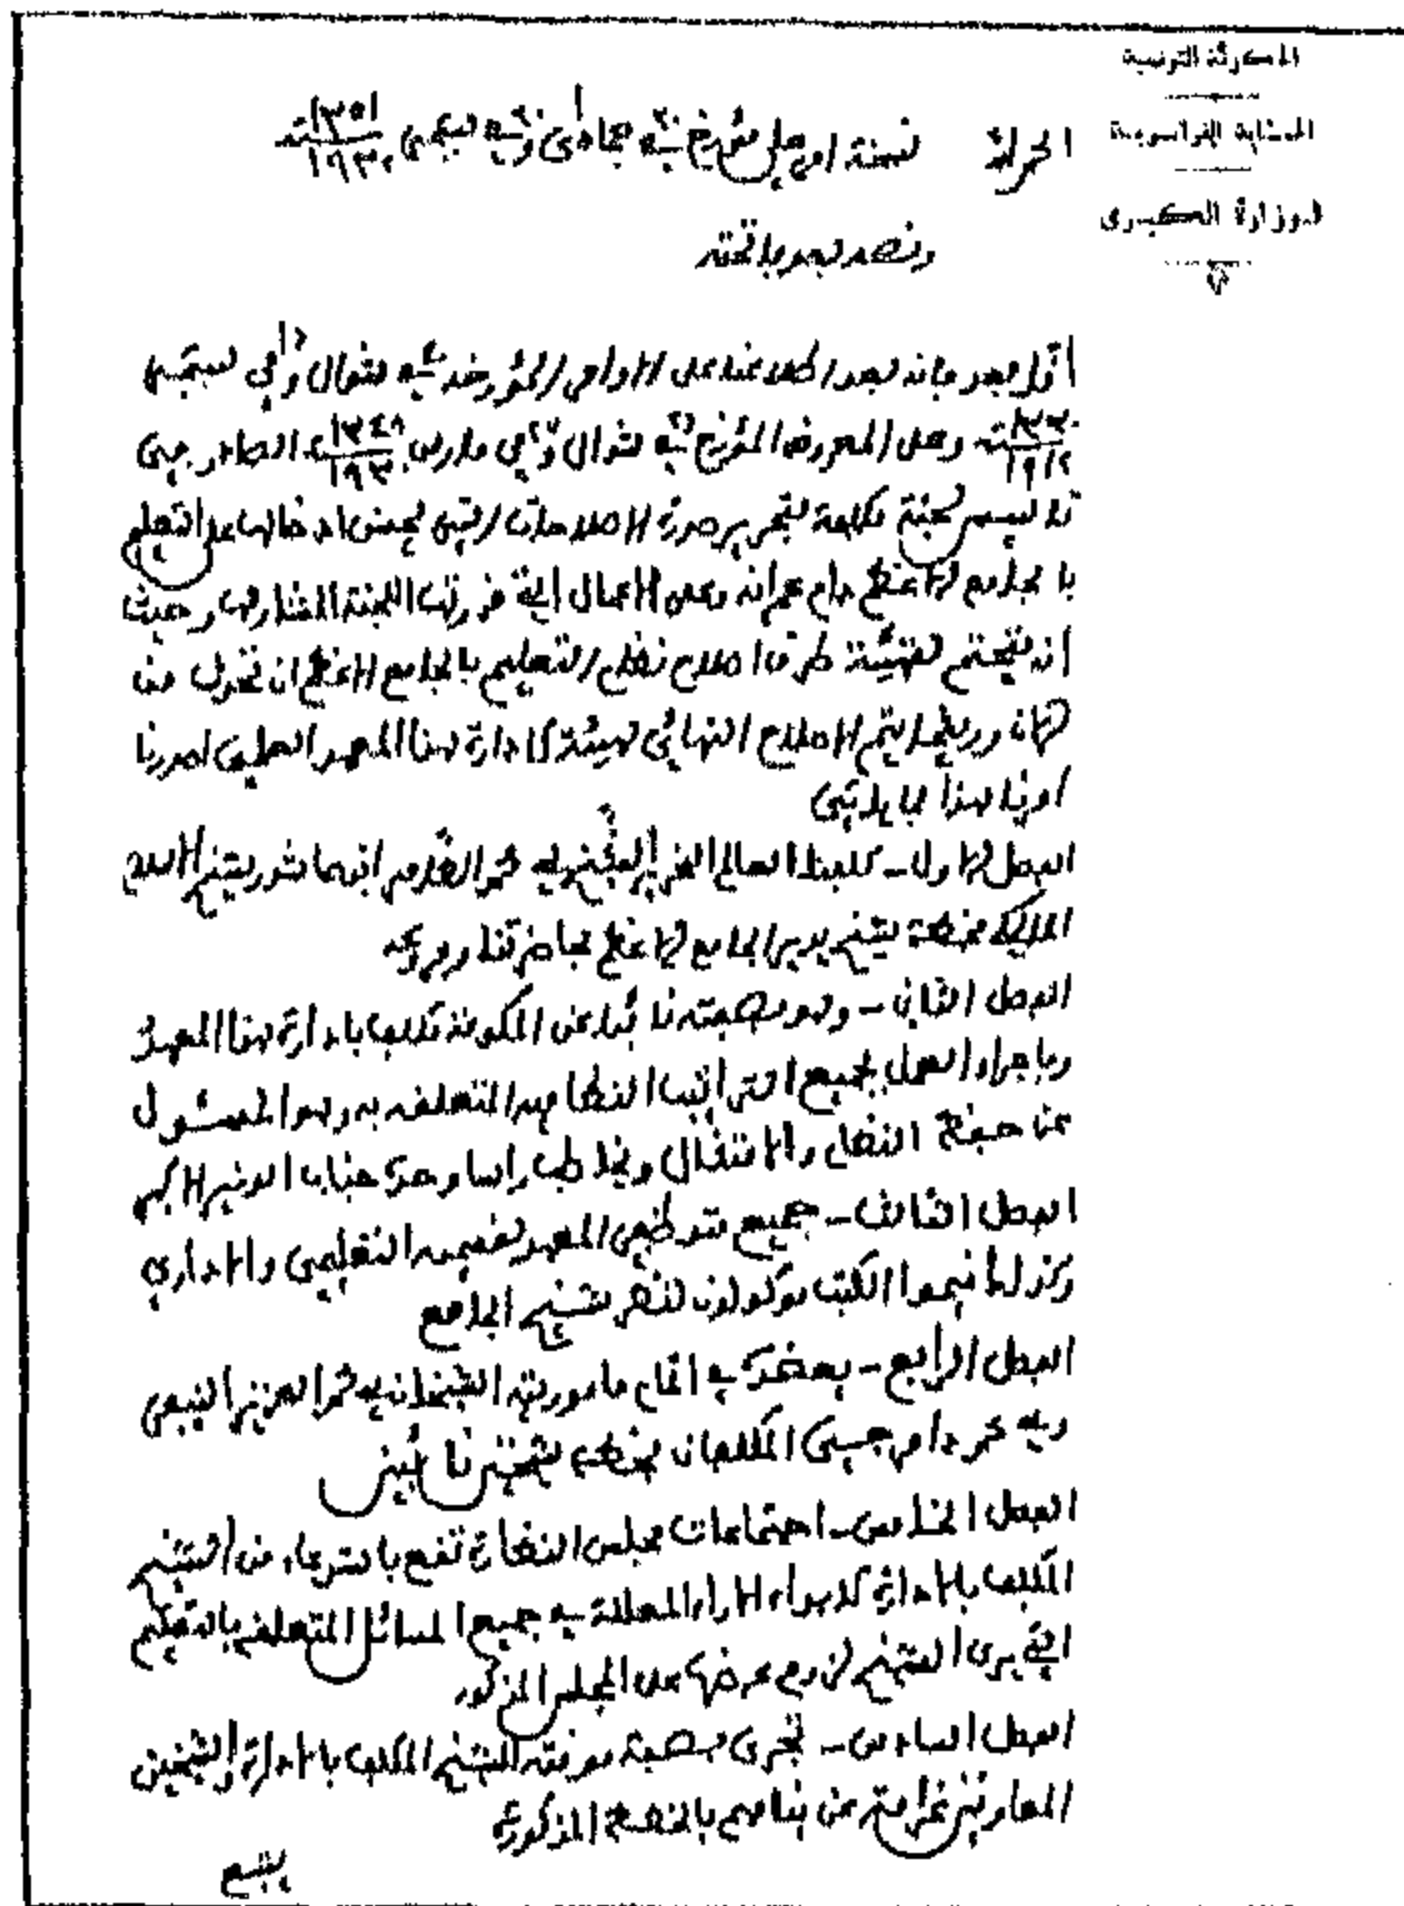 الدولة التونسية
الحماية الفرانسوية
الوزارة الكبرى
الحمد لله نسخة امر علي مؤرخ في جمادى وفي سبتمبر سنة ١٣٥١ ١٩٣٢
ونصه بعد ما تحته
أما بعد فانه بعد اطلاعنا على الاوامر المؤرخة في شوال وفي سبتمبر
سنة ١٣٣٠ ١٩١٢ وعلى المعروض المؤرخ في شوال وفي مارس سنة ١٣٤٨ ١٩٣٠ الصادر في
تاسيس لجنة مكلفة بتحرير صورة الاصلاحات التي يحسن ادخالها على التعليم
بالجامع الاعظم دام عمرانه وعلى الاعمال التي قررتها اللجنة المشار لها وحيث
ان يتحتم لتهيئة طرق اصلاح نظام التعليم بالجامع الاعظم ان تخول من
الآن وريثما يتم الاصلاح النهائي لهيئة ادارة هذا المعهد العلمي اصدرنا
امرنا هذا بما ياتي
الفصل الاول - كلفنا العالم النحرير الشيخ سيدي محمد الطاهر ابن عاشور شيخ الاسلام
المالكي بخطة شيخ مدير الجامع الاعظم بحاضرتنا وفروعه
الفصل الثاني - وهو بصفته نائبا عن الحكومة تكلف بادارة هذا المعهد
وباجراء العمل بجميع التراتيب النظامية المتعلقة به وهو المسئول
عن حفظ النظام والامتثال ويخاطب راسا وحده جناب الوزير الاكبر
الفصل الثالث - جميع متوظفي المعهد بقسميه التعليمي والاداري
وكذلك قيموا الكتب موكولون لنظر شيخ الجامع
الفصل الرابع - يعضده في اتمام ماموريته الشيخان سيدي محمد العزيز النيفر
وسيدي محمد دامرجي المكلفان بخطة شيخين نائبين
الفصل الخامس - اجتماعات مجلس النظارة تقع باستدعاء من الشيخ
المكلف بالادارة لابداء الاراء المعللة في جميع المسائل المتعلقة بالتعليم
التي يرى الشيخ لزوم عرضها على المجلس المذكور
الفصل السادس - تجرى بصفة موقتة للشيخ المكلف بالادارة والشيخين
المعاونين غرامة عن قيامهم بالخطة المذكورة
يتبع